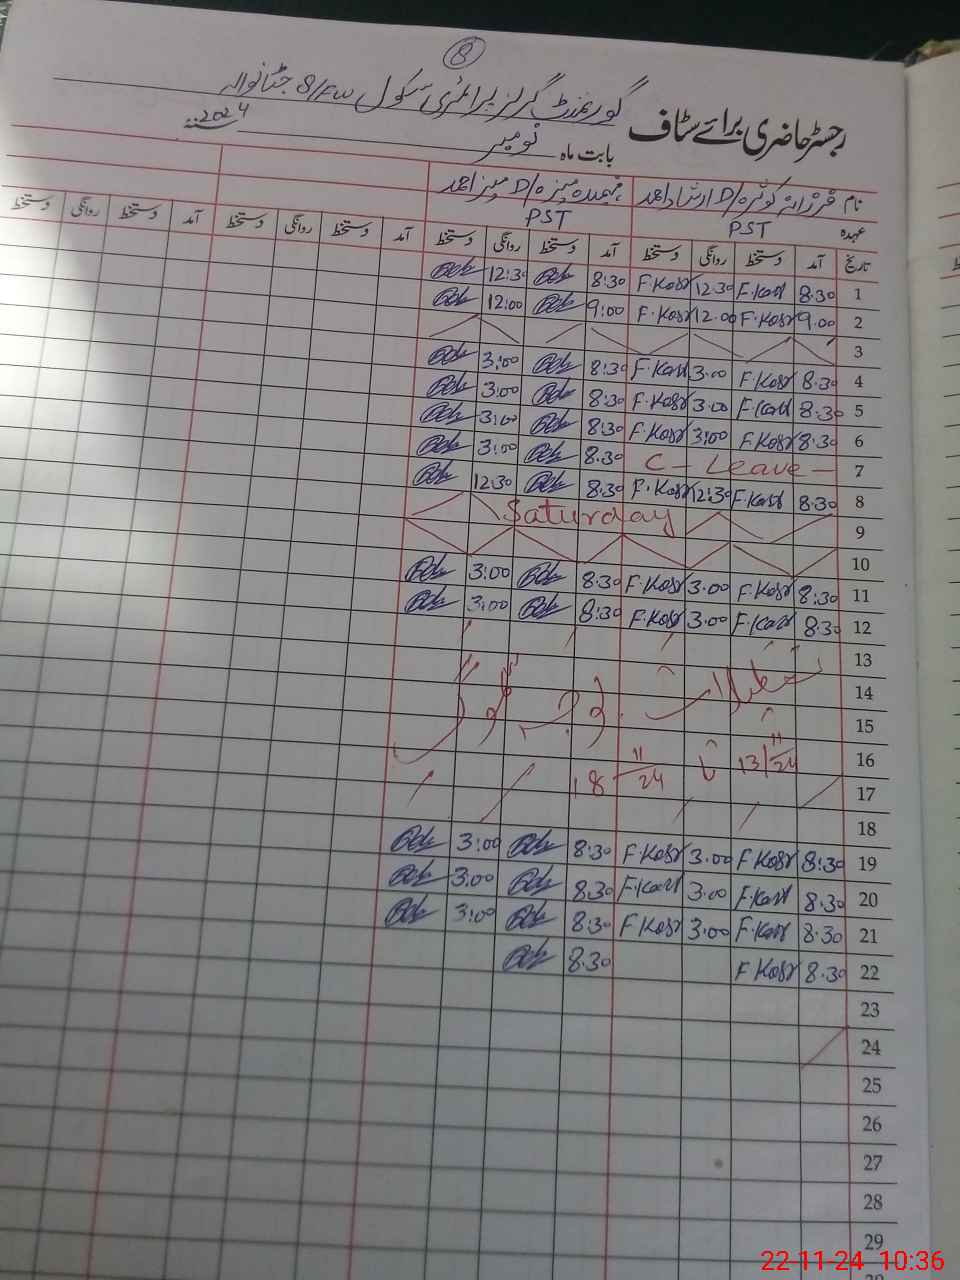 8
گورنمنٹ گرلز پرائمری سکول 8/FW
رجسٹر حاضری برائے سٹاف
بابت ماہ نومبر 2024
نام فرزانہ کوثر D/O ارشاد احمد
عہدہ PST PST
تاریخ آمد دستخط روانگی دستخط آمد دستخط روانگی دستخط آمد دستخط روانگی دستخط آمد دستخط روانگی دستخط
1 8:30 F.Kosr 12:30 F.Kosr 8:30 12:30
2 9.00 F.Kosr 12.00 F.Kosr 9:00 12:00
3
4 8:30 F.Kosr 3.00 F.Kosr 8:30 3:00
5 8:30 F.Kosr 3.00 F.Kosr 8:30 3:00
6 8:30 F.Kosr 3:00 F.Kosr 8:30 3:00
7 C - Leave - 8:30 3:00
8 8:30 F.Kosr 12:30 F.Kosr 8:30 12:30
9 Saturday
10
11 8:30 F.Kosr 3.00 F.Kosr 8:30 3:00
12 8:30 F.Kosr 3.00 F.Kosr 8:30 3:00
13
14 تعطیلات
15
16 13/11/24 تا 18 11/24
17
18
19 8:30 F.Kosr 3.00 F.Kosr 8:30 3:00
20 8:30 F.Kosr 3.00 F.Kosr 8:30 3:00
21 8:30 F.Kosr 3.00 F.Kosr 8:30 3:00
22 8.30 F Kosr 8.30
23
24
25
26
27
28
29
22-11-24 10:36